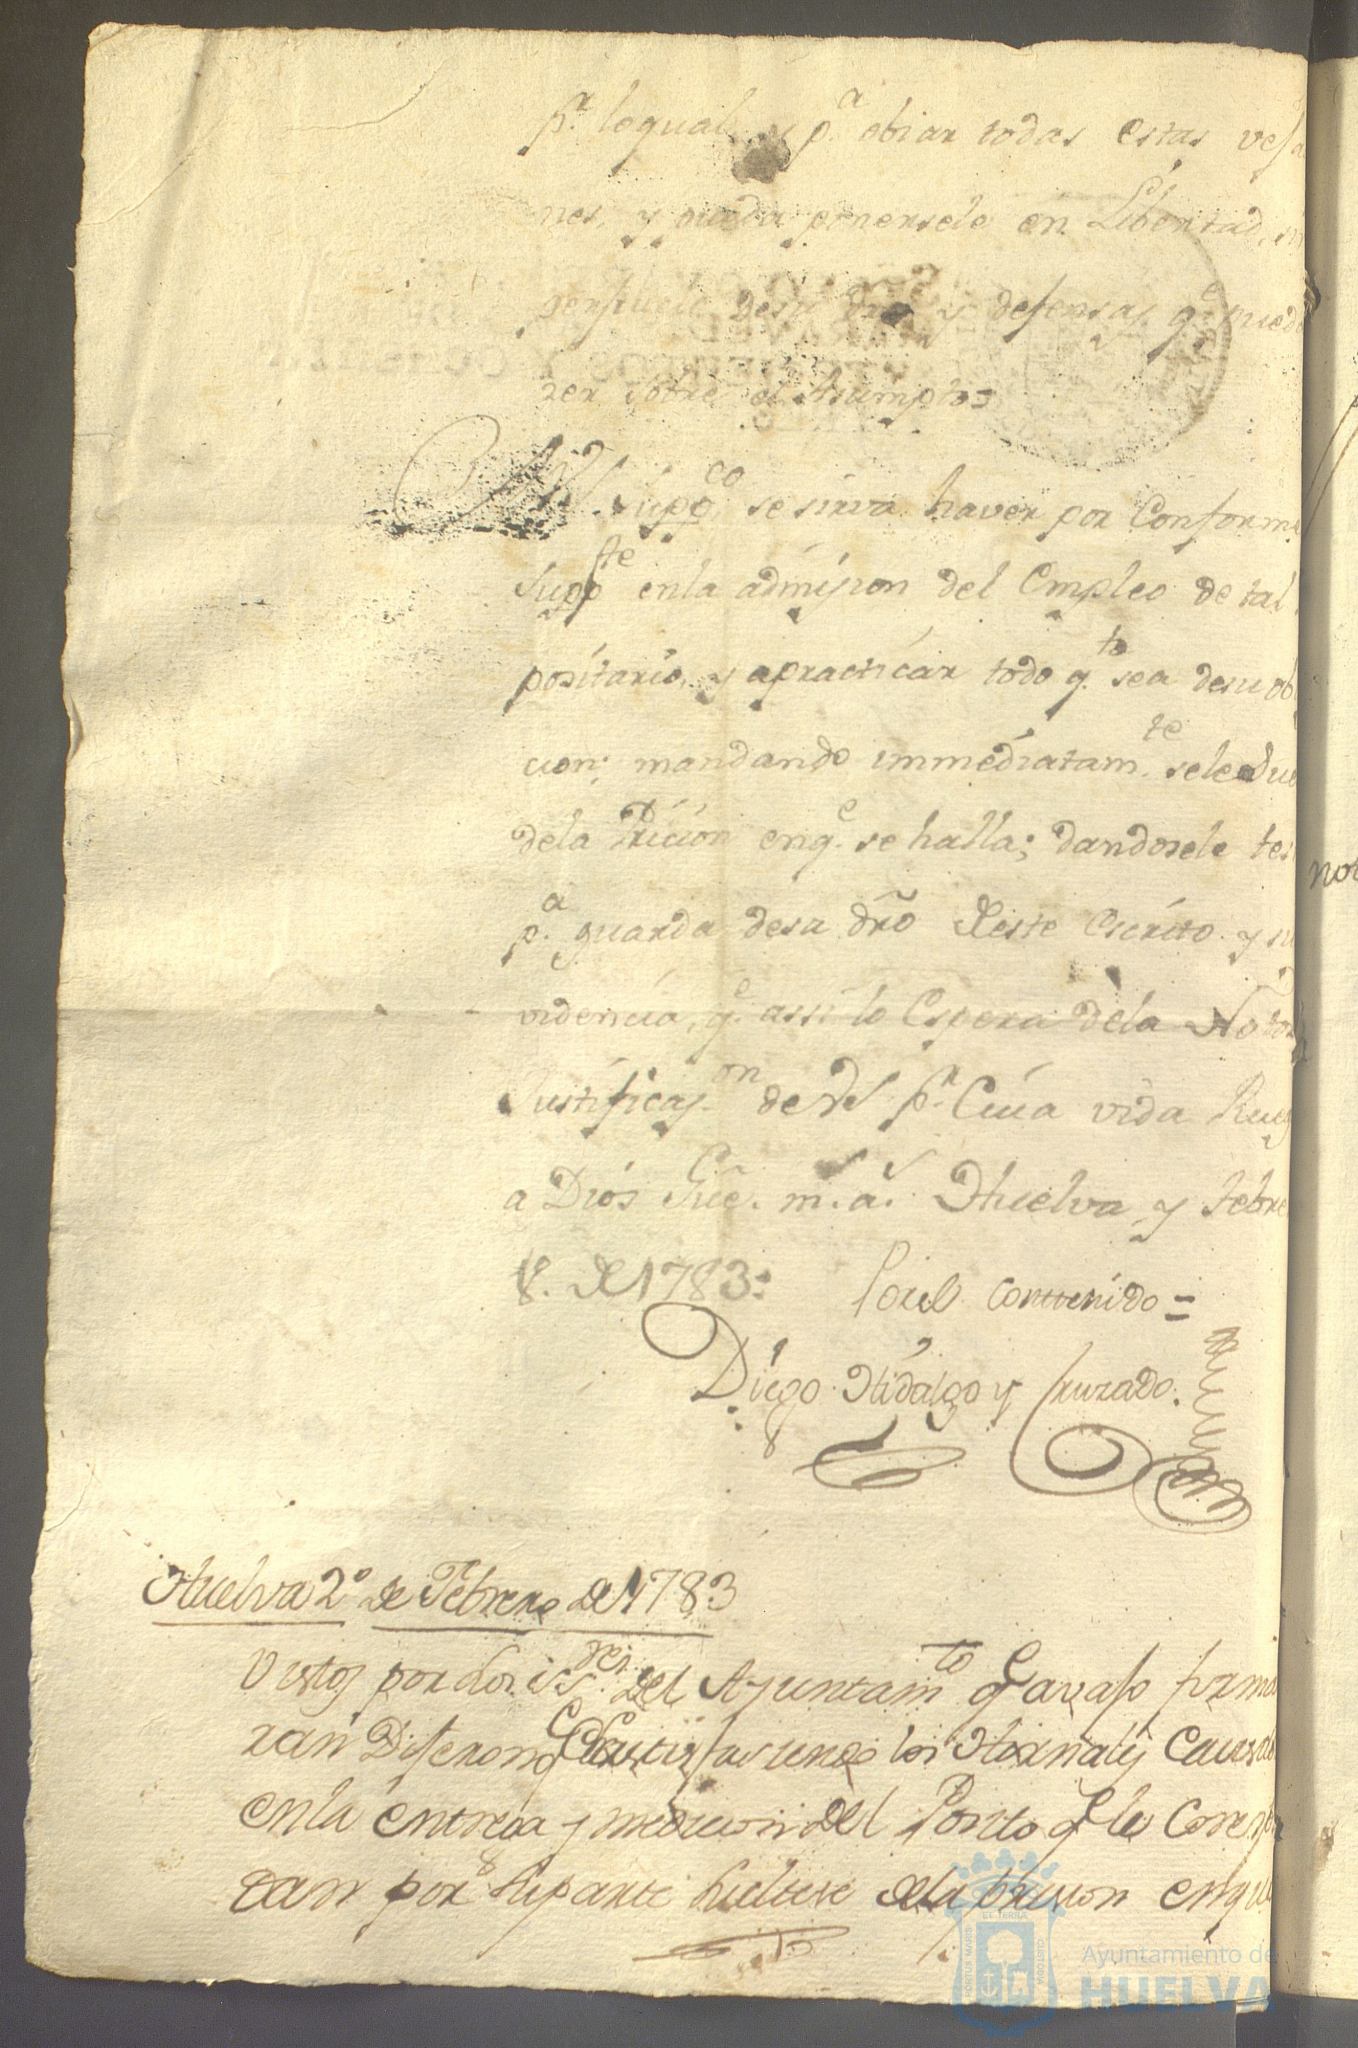 pa. loqual y pa. obiar todas estas vesa
nes, y pueda ponersele en Libertad, sin
perjuicio desu dro y defensas qe. pued
zer sobre el Asumpto=
A V. Suppco. se sirva haver por Conforme
Suppte en la admision del Empleo de tal
positario, y apracticar todo qto. sea desu ob
cion; mandando immediatamte. sele
dela Pricion enqe. se halla; dandosele tes
pa. guarda desu dr̃o deeste Escrito y su
videncia, qe. assi lo Espera dela Notor
Justificason. de V. pr. Cuia vida Rueg
a Dios Gũe. ms. as. Huelva y Febre
8. de 1783= Por el Conttenido=
Diego Hidalgo y Cruzado.
Huelva 2º de Febrero de 1783
Vistos por los SSres. del Ayuntamto qe avaso firma
ran Dijeron qe
en la entrega y medicion del Posito qe le Corresp
dan por su parte Sueltese dela prision enque
EL TERRÆ
PORTUS MARIS
CUSTODIA
Ayuntamiento de
HUELVA